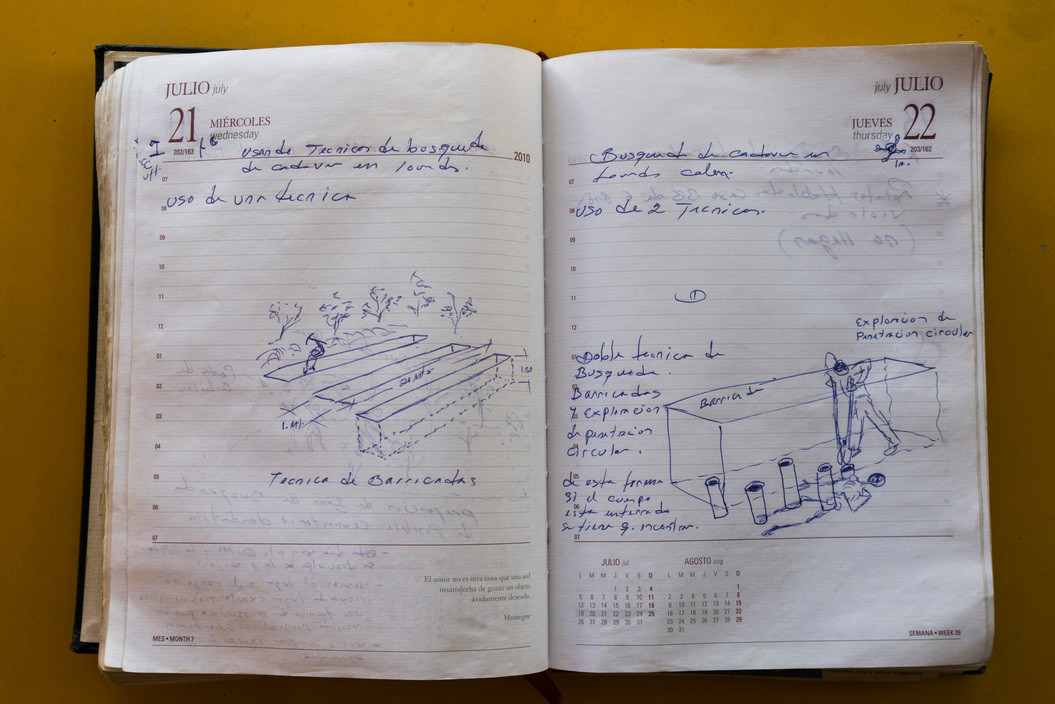 JULIO july
21 MIÉRCOLES
wednesday
202/163
2010
usando Tecnicas de busqueda
de cadaver en lourdes.
07
uso de una tecnica
08
09
10
11
12
01
02
03
04
05
06
07
1.50
1. Mt
Tecnica de Barricadas
El amor no es otra cosa que una sed
insatisfecha de gozar un objeto
ávidamente deseado.
Montaigne
MES • MONTH 7
july JULIO
JUEVES 22
thursday
203/162
Busqueda de cadaver en
Lourdes colon
07
uso de 2 Tecnicas.
08
09
10
11
1
12
Exploracion de
Penetracion circular
01
Doble tecnica de
Busqueda.
Barricadas
y exploracion
de penetracion
circular.
Barricada
de esta forma
si el cuerpo
esta enterrado
se tiene q. encontrar.
05
06
07
JULIO jul
L M M J V S D
1 2 3 4
5 6 7 8 9 10 11
12 13 14 15 16 17 18
19 20 21 22 23 24 25
26 27 28 29 30 31
AGOSTO aug
L M M J V S D
1
2 3 4 5 6 7 8
9 10 11 12 13 14 15
16 17 18 19 20 21 22
23 24 25 26 27 28 29
30 31
SEMANA • WEEK 29